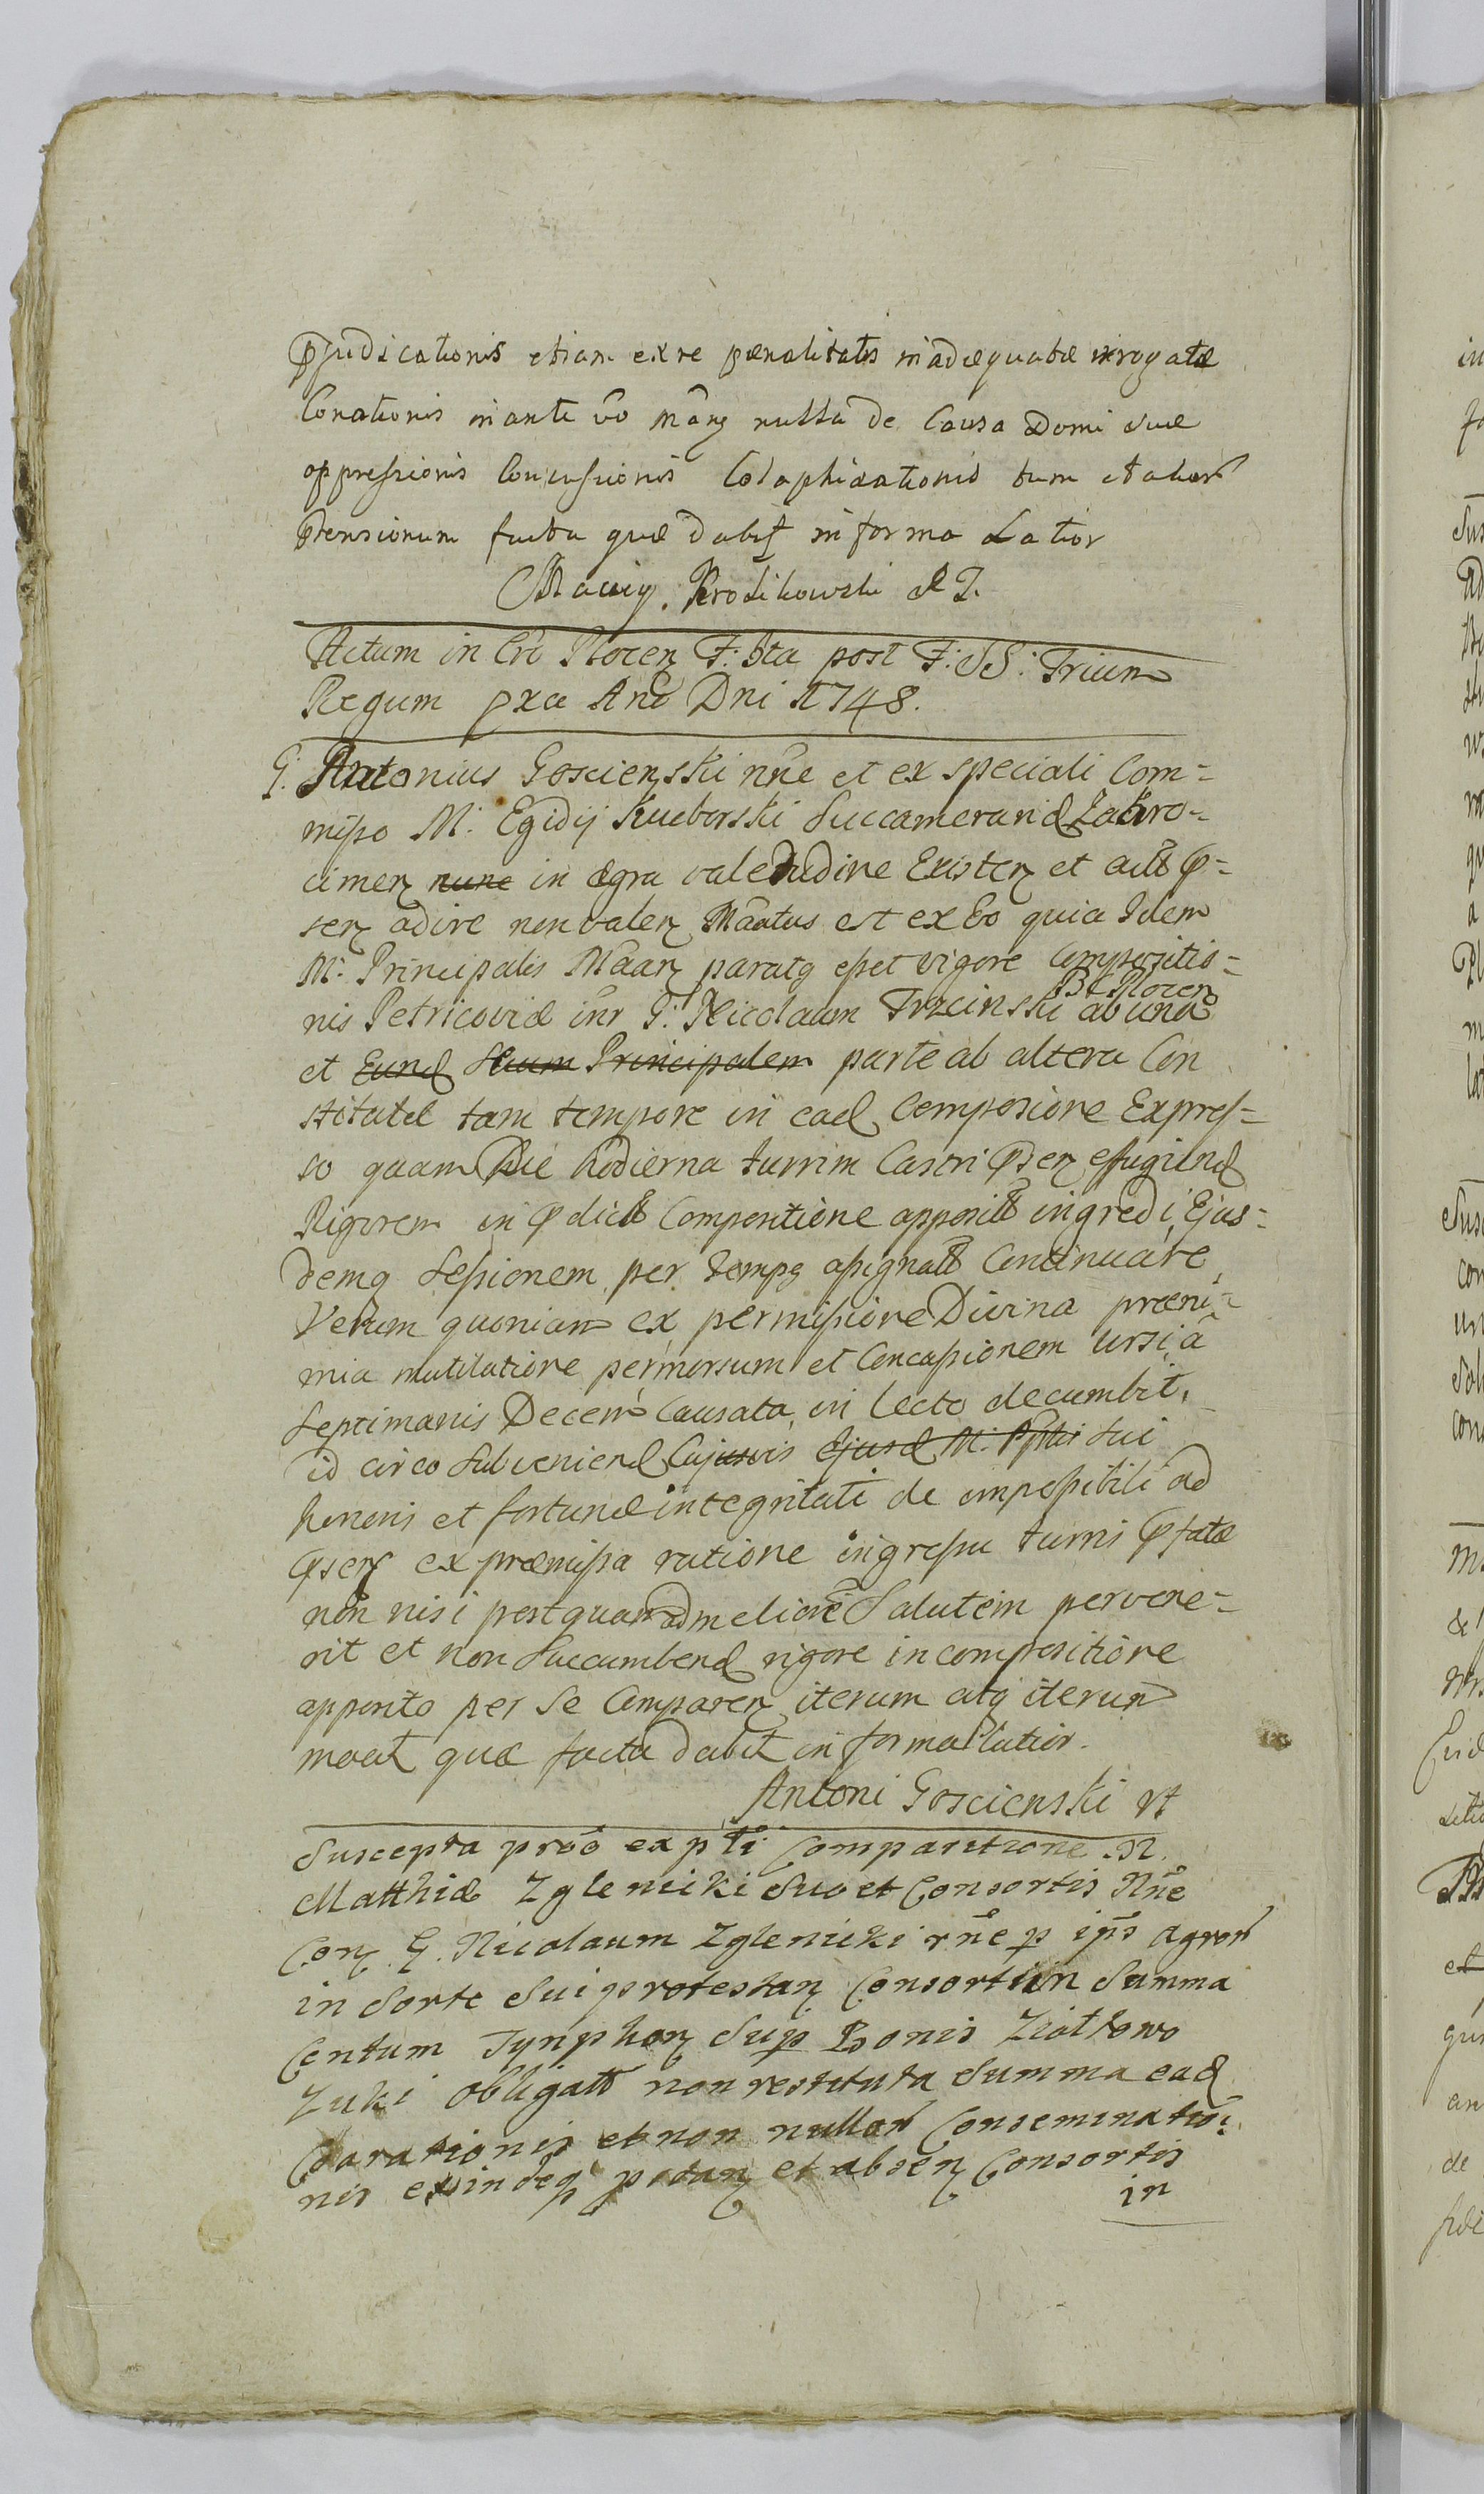 Pjudicationis etiam ex re pænalitatis inadæquatæ irrogatæ
Conationis inante vo mang nulla de Causa Domi suæ
oppressionis Concussionis Colaphizationis tum et alior
Ptensionum facta quæ dabit in forma Latior
Maciey. Krolikowski
Actum in Cro Plocen F: 6ta post F: SS: Trium
Regum pxa Ano Dni 1748.
G. Antonius Goscienski nne et ex speciali Com=
misso M: Egidij Kucborski Succamerarid Zakro=
cimen nunc in ægra valetudine Existen et actt P=
sen adire non valen Maatus est ex Eo quia Idem
M: Principalis Maan paratq esset vigore Compositio=
nis Petricoviæ inr G: Nicolaum Trzcinski ab una
B C Plocen
et Eund Suum Principalem parte ab altera Con
stitutæ tam tempore in ead Composione Expres=
so quam Die hodierna turrim Castri Psen effugiend
Rigorem in P dictt Compositione apposit ingredi, Ejus=
demq Sessionem per tempq assignatt Continuare,
Verum quoniam ex permissione Divina præni=
mia mutilatione permorsum et Concassionem Ursi a
Septimanis Decem Causata, in lecto decumbit,
id circo Subveniend Cujusvis Ejusd M: Pplis sui
honoris et fortunæ integritati de impossibili ad
Psens ex præmissa ratione ingressu turris Pfatæ
non nisi postquam ad meliore Salutem pervene=
rit et non Succumbend rigore in compositione
apposito per Se Comparen iterum atq iterum
maat quæ facta dabit in forma Platior.
Antoni Goscienski
Suscepta prõõ ex pti Comparitione N.
Matthiæ Zglenicki Suo et Consortis Nne
Con G. Nicolaum Zglenicki rne p ips agror
in Sorte Sui protestan Consortum Summa
Centum Tynphon Sup Bonis Ziotkowo
Zuki obligatt non restituta Summa ead
Coarationis et non nullor Conseminatio=
nis exindeq pstan et absen Consortis
in